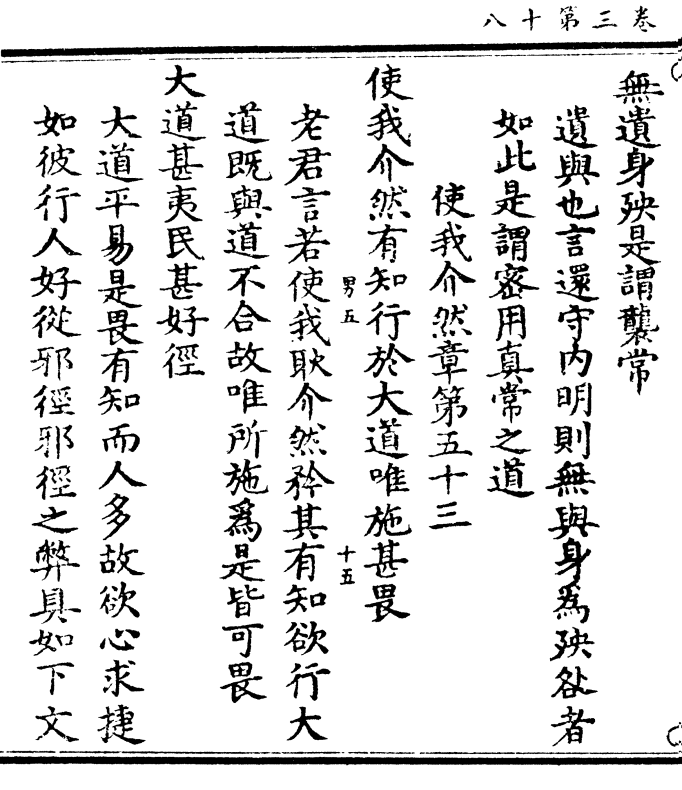 卷三第十八
無遺身殃是謂襲常
遺與也言還守內明則無與身為殃咎者
如此是謂密用真常之道
使我介然章第五十三
使我介然有知行於大道唯施甚畏
男五
十五
老君言若使我耿介然矜其有知欲行大
道既與道不合故唯所施為是皆可畏
大道甚夷民甚好徑
大道平易是畏有知而人多故欲心求捷
如彼行人好從邪徑邪徑之弊具如下文